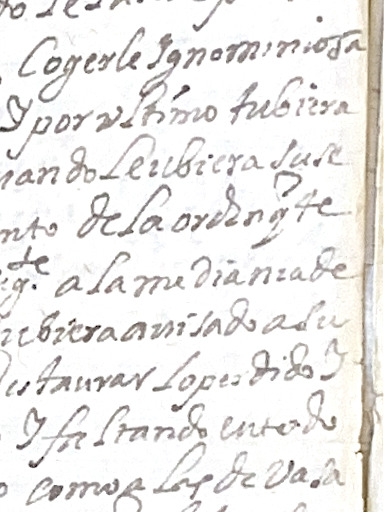 Cogerle Ygnominiosa
Y por vltimo tubiera
ando le ubiera suse
nto de la orden q̃ te
a la mediania de
ubiera auisado a su
estaurar lo perdido Y
Y faltando en todo
como a las de Vasa